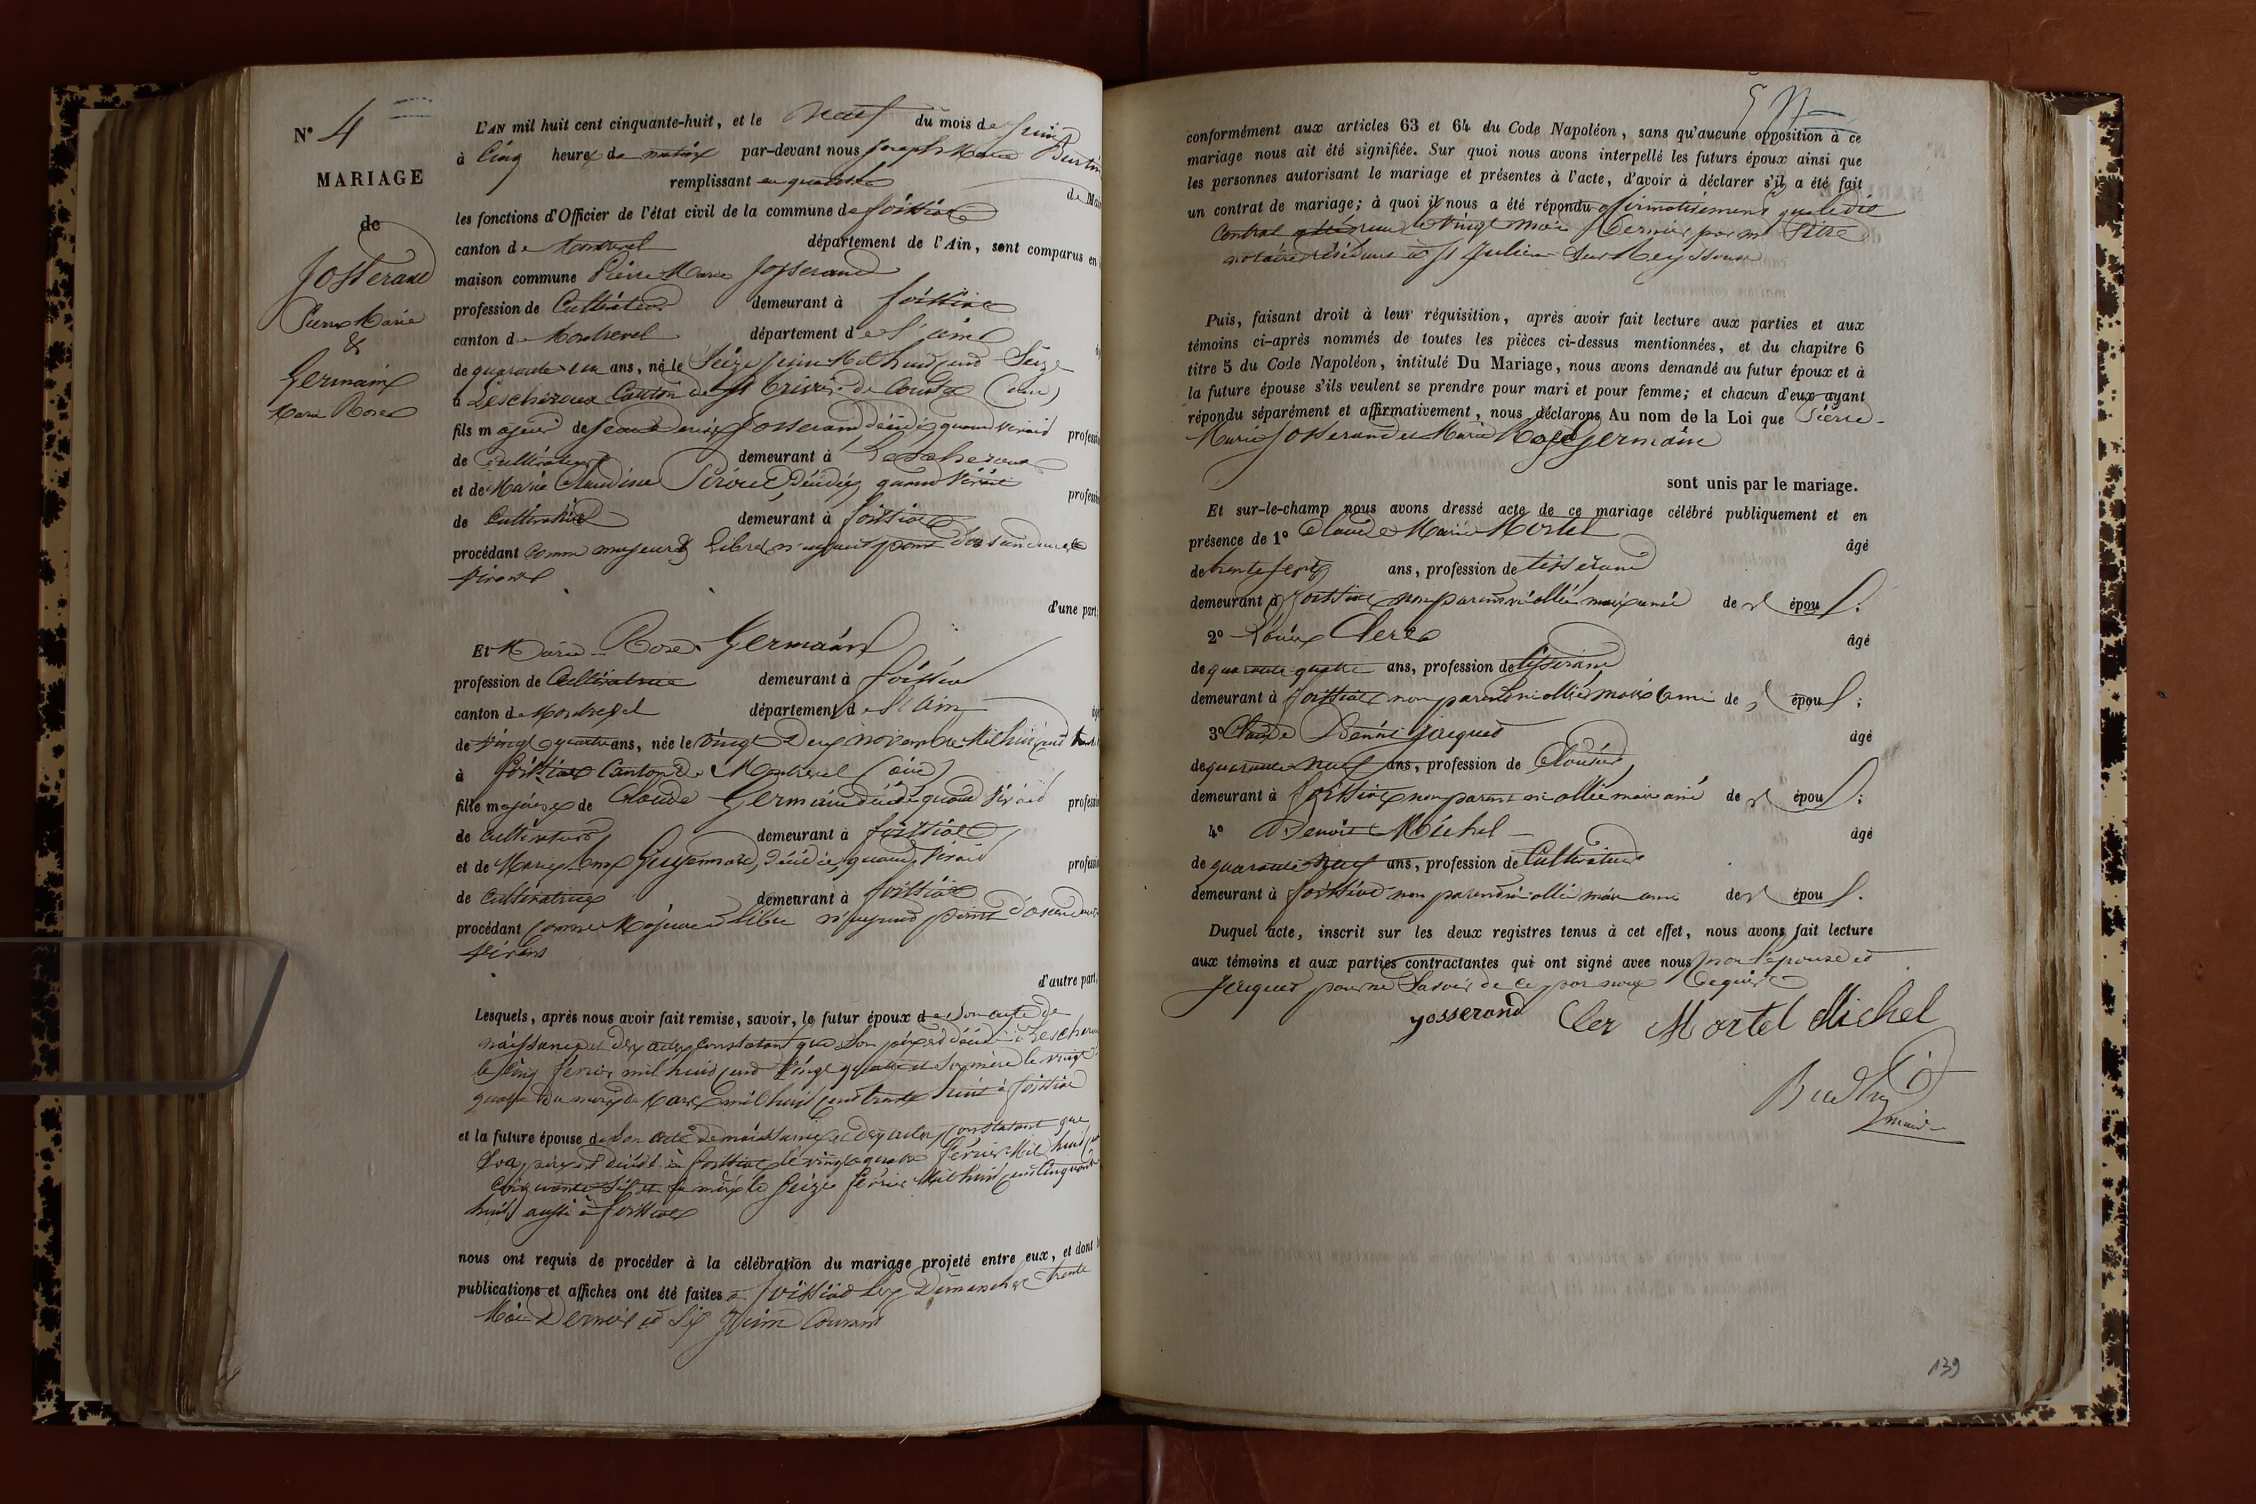 N° 4
MARIAGE
de
Josserand
Pierre Marie
&
Germain
Marie Rose
L'AN mil huit cent cinquante-huit, et le neuf du mois de juin
à cinq heures du matin par-devant nous Joseph Marie
remplissant en qualité de Mai
les fonctions d'Officier de l'état civil de la commune de foissiat
canton de Montrevel département de l'Ain, sont comparus en
maison commune Pierre Marie Josserand
profession de Cultivateur demeurant à foissiat
canton de Montrevel département de l'ain
de quarante un ans, né le Seize juin Mil huit cent Seize
à Lescheroux Canton de St Trivier de Courtes (ain)
fils majeur de Josserand décédé quand vivait profess
de cultivateur demeurant à Lescheroux
et de Marie Claudine décédée quand vivait profess
de Cultivatrice demeurant à foissiat
procédant comme majeur & libre n'ayant point d'ascendants
vivants
d'une part,
Et Marie Rose Germain
profession de Cultivatrice demeurant à foissiat
canton de Montrevel département de l'ain
de vingt quatre ans, née le vingt Deux novembre Mil huit cent
à foissiat Canton de Montrevel (ain)
fille majeure de Claude Germain décédé quand vivait profess
de cultivateur demeurant à foissiat
et de Marie décédée, quand vivait profess
de cultivatrice demeurant à foissiat
procédant Comme Majeure & libre n'ayant point d'ascendants
vivans
d'autre part,
Lesquels, après nous avoir fait remise, savoir, le futur époux de son acte de
naissance et des actes constatant que son père est décédé à Lescheroux
le cinq février mil huit cent vingt quatre et sa mère le vingt
quatre du mois de Mars mil huit cent trente huit à foissiat
et la future épouse de son acte de naissance et des actes constatant que
son père est décédé à foissiat le vingt quatre février Mil huit cent
cinquante six et sa mère le Seize février Mil huit cent cinquante
huit aussi à foissiat
nous ont requis de procéder à la célébration du mariage projeté entre eux, et dont
publications et affiches ont été faites à foissiat les Dimanches trente
Mai Dernier et Six Juin Courant
conformément aux articles 63 et 64 du Code Napoléon, sans qu'aucune opposition à ce
mariage nous ait été signifiée. Sur quoi nous avons interpellé les futurs époux ainsi que
les personnes autorisant le mariage et présentes à l'acte, d'avoir à déclarer s'il a été fait
un contrat de mariage; à quoi il nous a été répondu affirmativement que le dit
Contrat a été reçu le vingt mai Dernier par me
notaire résidant à St Julien Sur Reyssouze
Puis, faisant droit à leur réquisition, après avoir fait lecture aux parties et aux
témoins ci-après nommés de toutes les pièces ci-dessus mentionnées, et du chapitre 6
titre 5 du Code Napoléon, intitulé Du Mariage, nous avons demandé au futur époux et à
la future épouse s'ils veulent se prendre pour mari et pour femme; et chacun d'eux ayant
répondu séparément et affirmativement, nous déclarons Au nom de la Loi que Pierre
Marie Josserand et Marie Rose Germain
sont unis par le mariage.
Et sur-le-champ nous avons dressé acte de ce mariage célébré publiquement et en
présence de 1° Claude Marie Mortel âgé
de trente sept ans, profession de tisserand
demeurant à foissiat non parent ni allié mais ami de l'époux;
2° Louis Clerc âgé
de quarante quatre ans, profession de tisserand
demeurant à foissiat non parent ni allié mais ami de l'époux;
3° Claude Benoit Jacquet âgé
de quarante neuf ans, profession de Cloutier
demeurant à foissiat non parent ni allié mais ami de l'époux;
4° Benoit Michel âgé
de quarante neuf ans, profession de Cultivateur
demeurant à foissiat non parent ni allié mais ami de l'époux.
Duquel acte, inscrit sur les deux registres tenus à cet effet, nous avons fait lecture
aux témoins et aux parties contractantes qui ont signé avec nous non l'épouse et
Jacquet pour ne Savoir de ce par nous Requis
josserand Cler Mortel Michel
maire
139